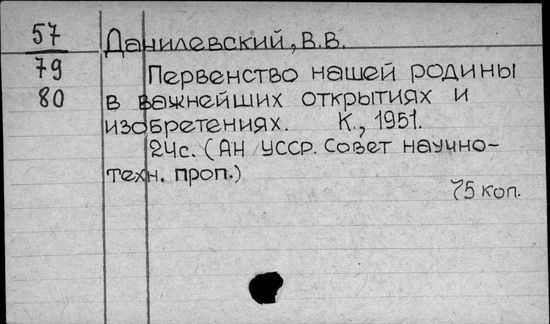 57
79
80
Данилевский, В.В.
Первенство нашей родины
в важнейших открытиях и
изобретениях. К., 1951.
24с. (АН УССР. Совет научно-
техн. проп.)
75 коп.